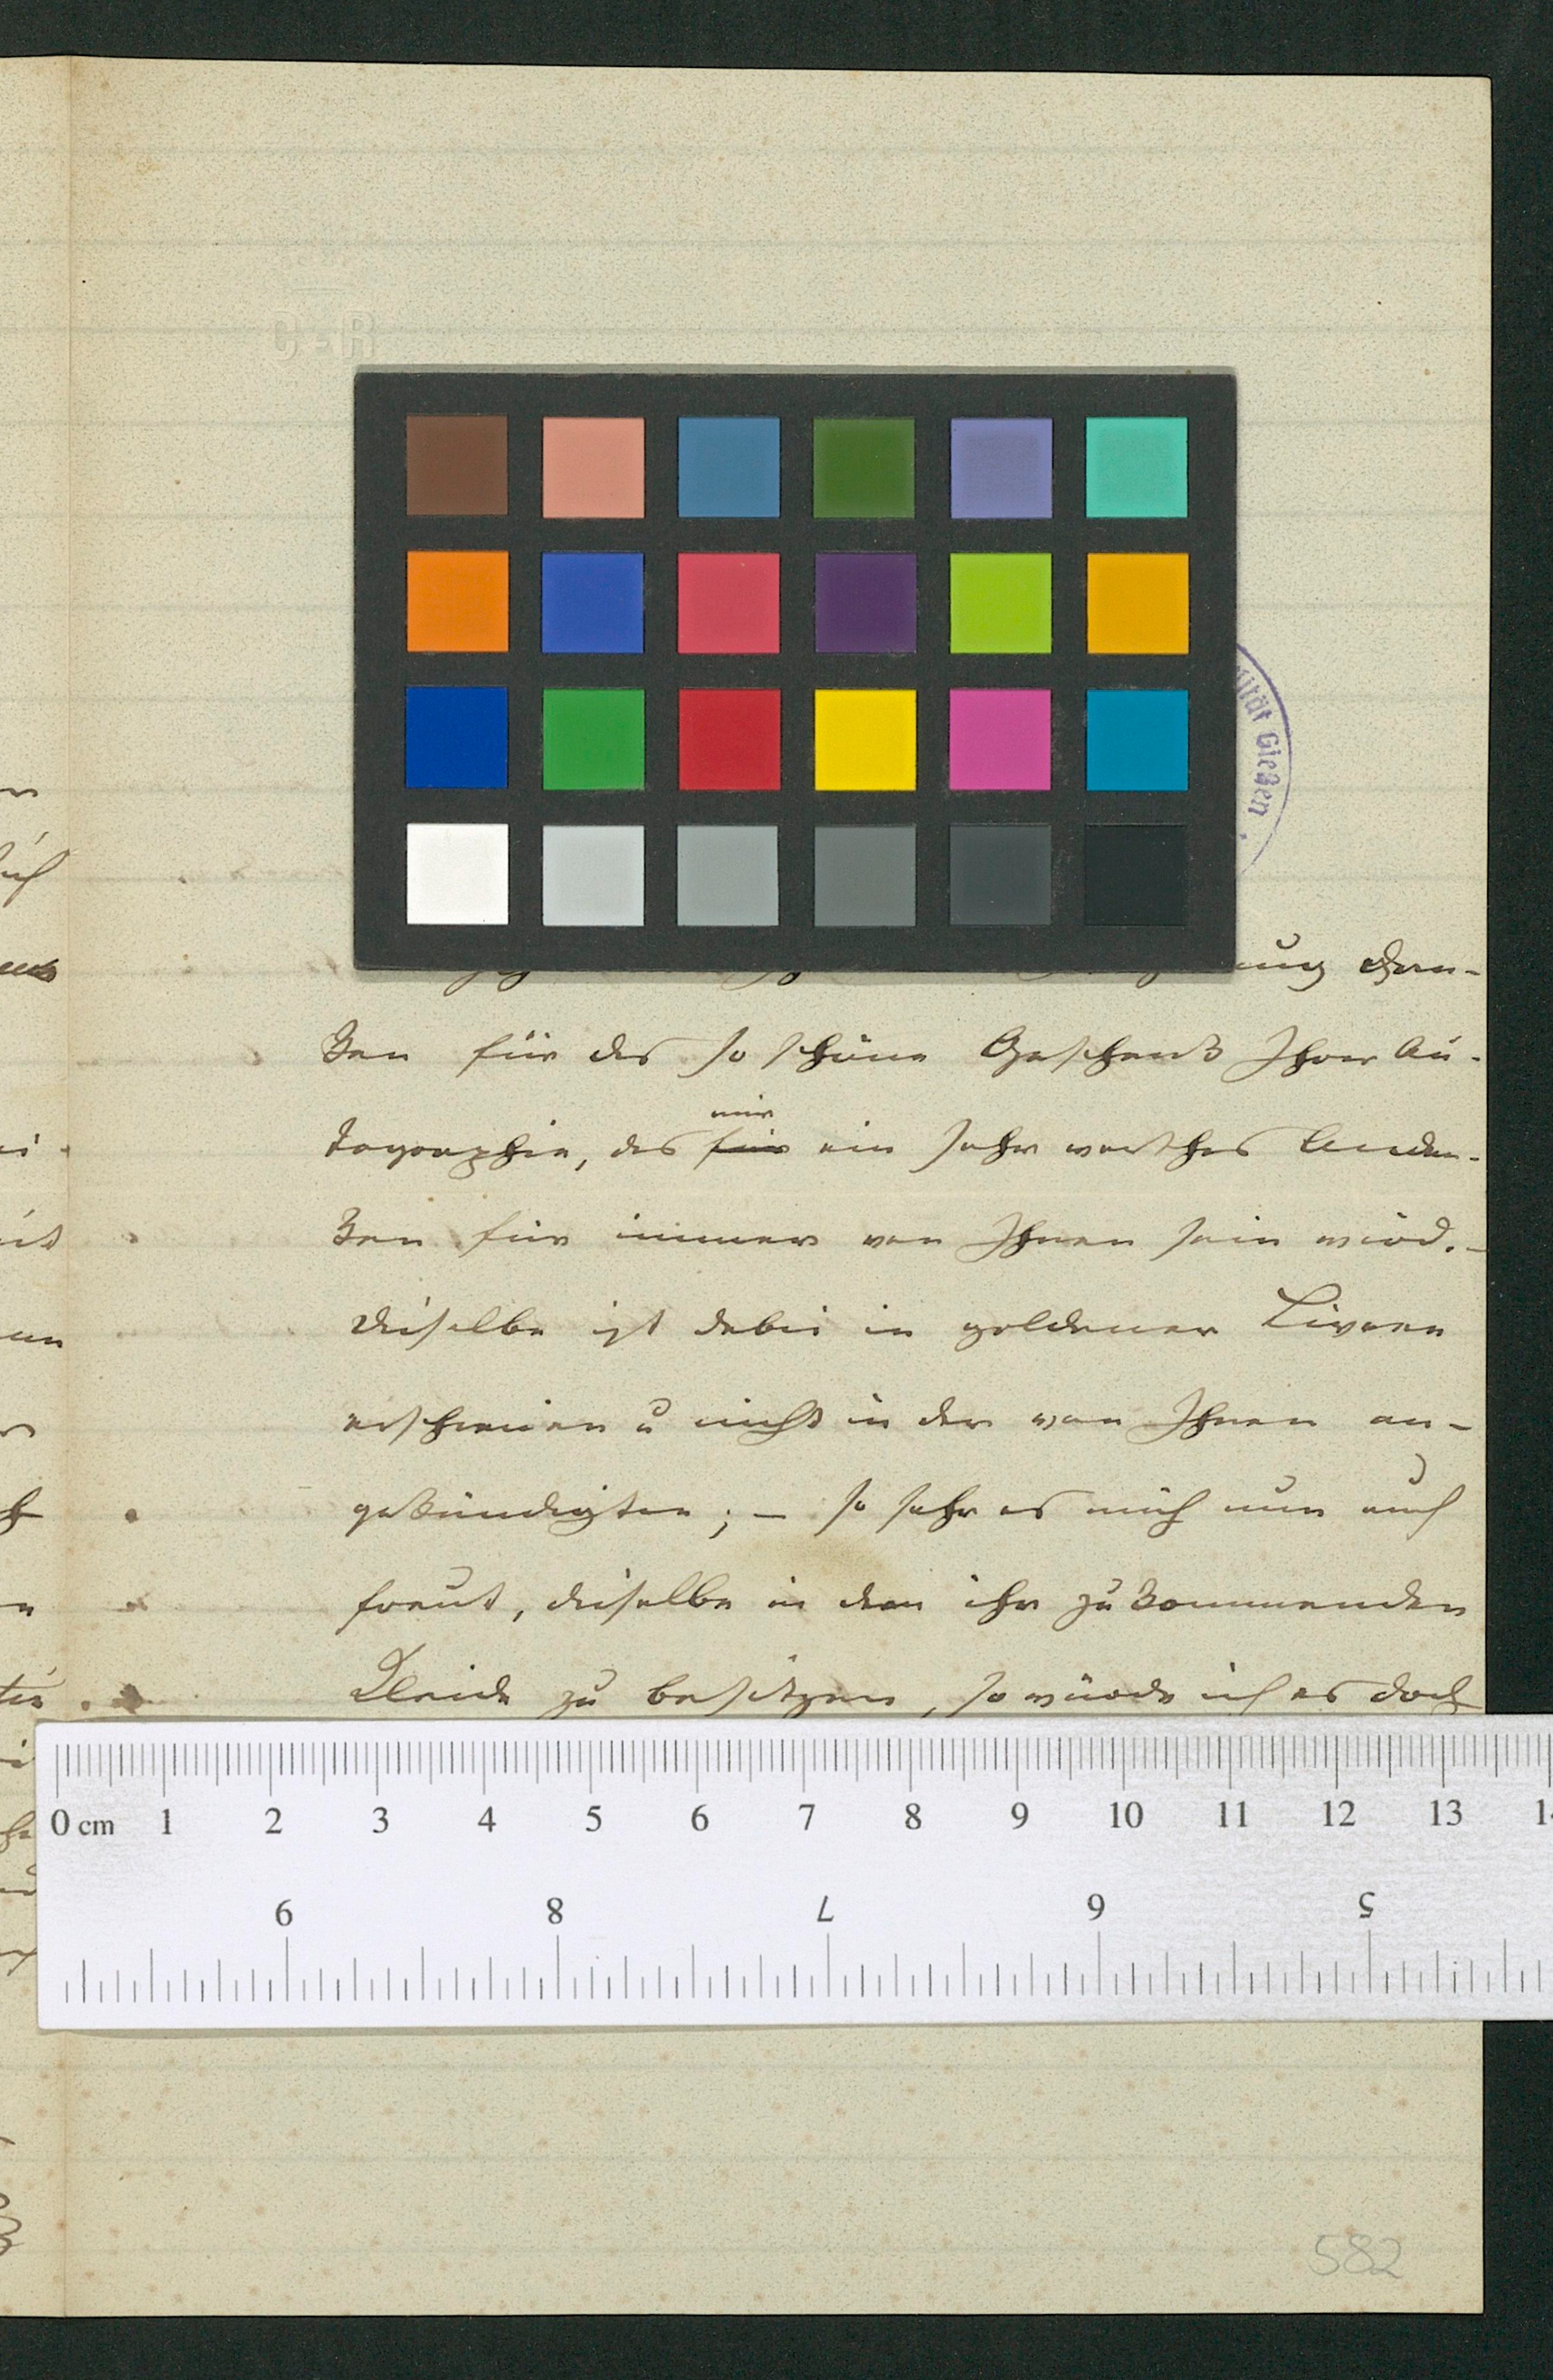 C-R
ität Gießen
ung dan-
ken für das so schöne Geschenk Ihrer Au-
tographie, das für mir ein sehr werthes Anden-
ken für immer von Ihnen sein wird. -
Dieselbe ist dabei in goldener Livree
erschienen u nicht in der von Ihnen an-
gekündigten; - so sehr es mich nun auch
freut, dieselbe in dem ihr zukommenden
Kleide zu besitzen, so würde ich es doch
0 cm 1 2 3 4 5 6 7 8 9 10 11 12 13
9 8 7 6 5
582